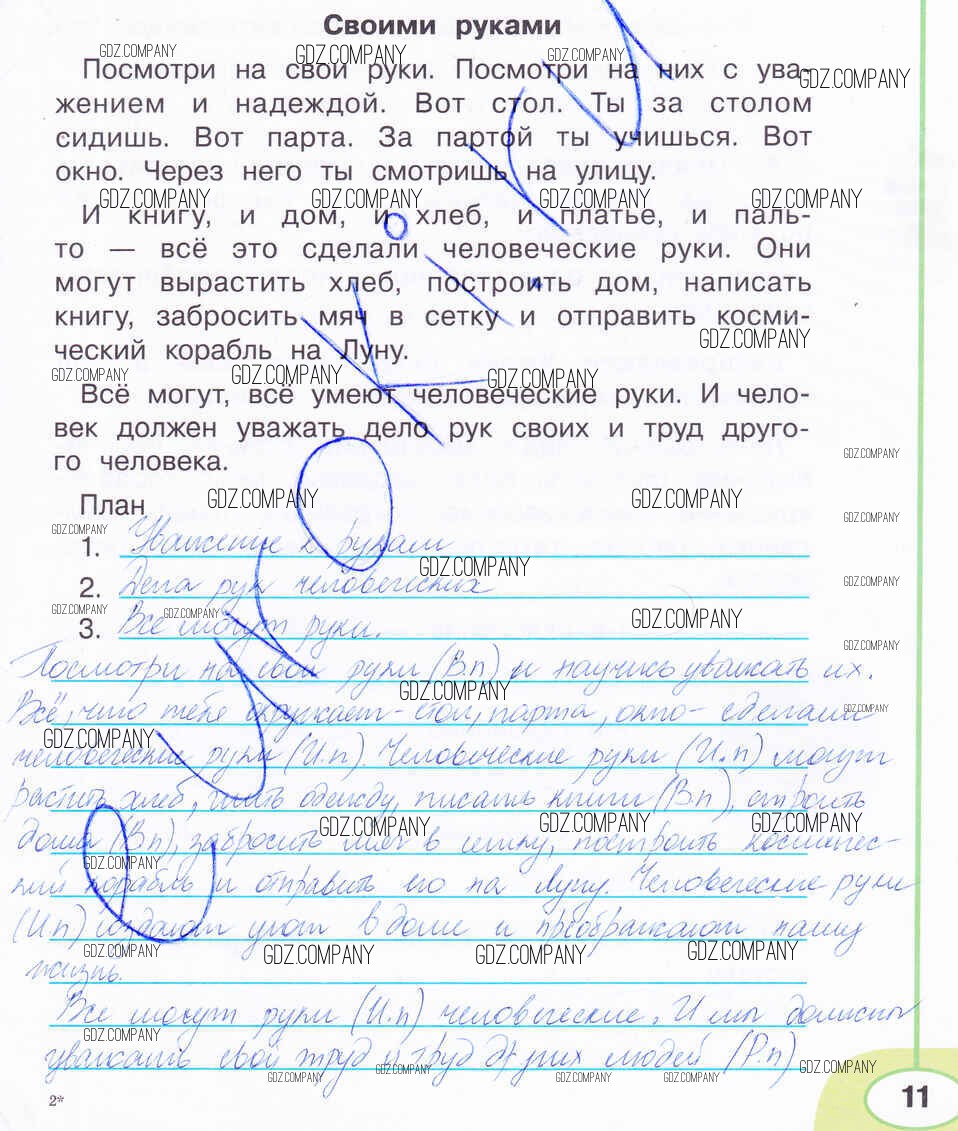 Своими руками
Посмотри на свои руки. Посмотри на них с ува-
жением и надеждой. Вот стол. Ты за столом
сидишь. Вот парта. За партой ты учишься. Вот
окно. Через него ты смотришь на улицу.
И книгу, и дом, и хлеб, и платье, и паль-
то — всё это сделали человеческие руки. Они
могут вырастить хлеб, построить дом, написать
книгу, забросить мяч в сетку и отправить косми-
ческий корабль на Луну.
Всё могут, всё умеют человеческие руки. И чело-
век должен уважать дело рук своих и труд друго-
го человека.
План
1. Уважение к рукам
2. Дела рук человеческих
3. Все могут руки.
Посмотри на свои руки (В.п) и научись уважать их.
Всё, что тебе окружает - стол, парта, окно - сделали
человеческие руки (И.п). Человеческие руки (И.п) могут
растить хлеб, шить одежду, писать книги (В.п), строить
дома (В.п), забросить мяч в сетку, построить космичес-
кий корабль и отправить его на Луну. Человеческие руки
(И.п) создают уют в доме и преображают нашу
жизнь.
Все могут руки (И.п) человеческие. И мы должны
уважать свой труд и труд других людей (Р.п)
2*
11
GDZ.COMPANY